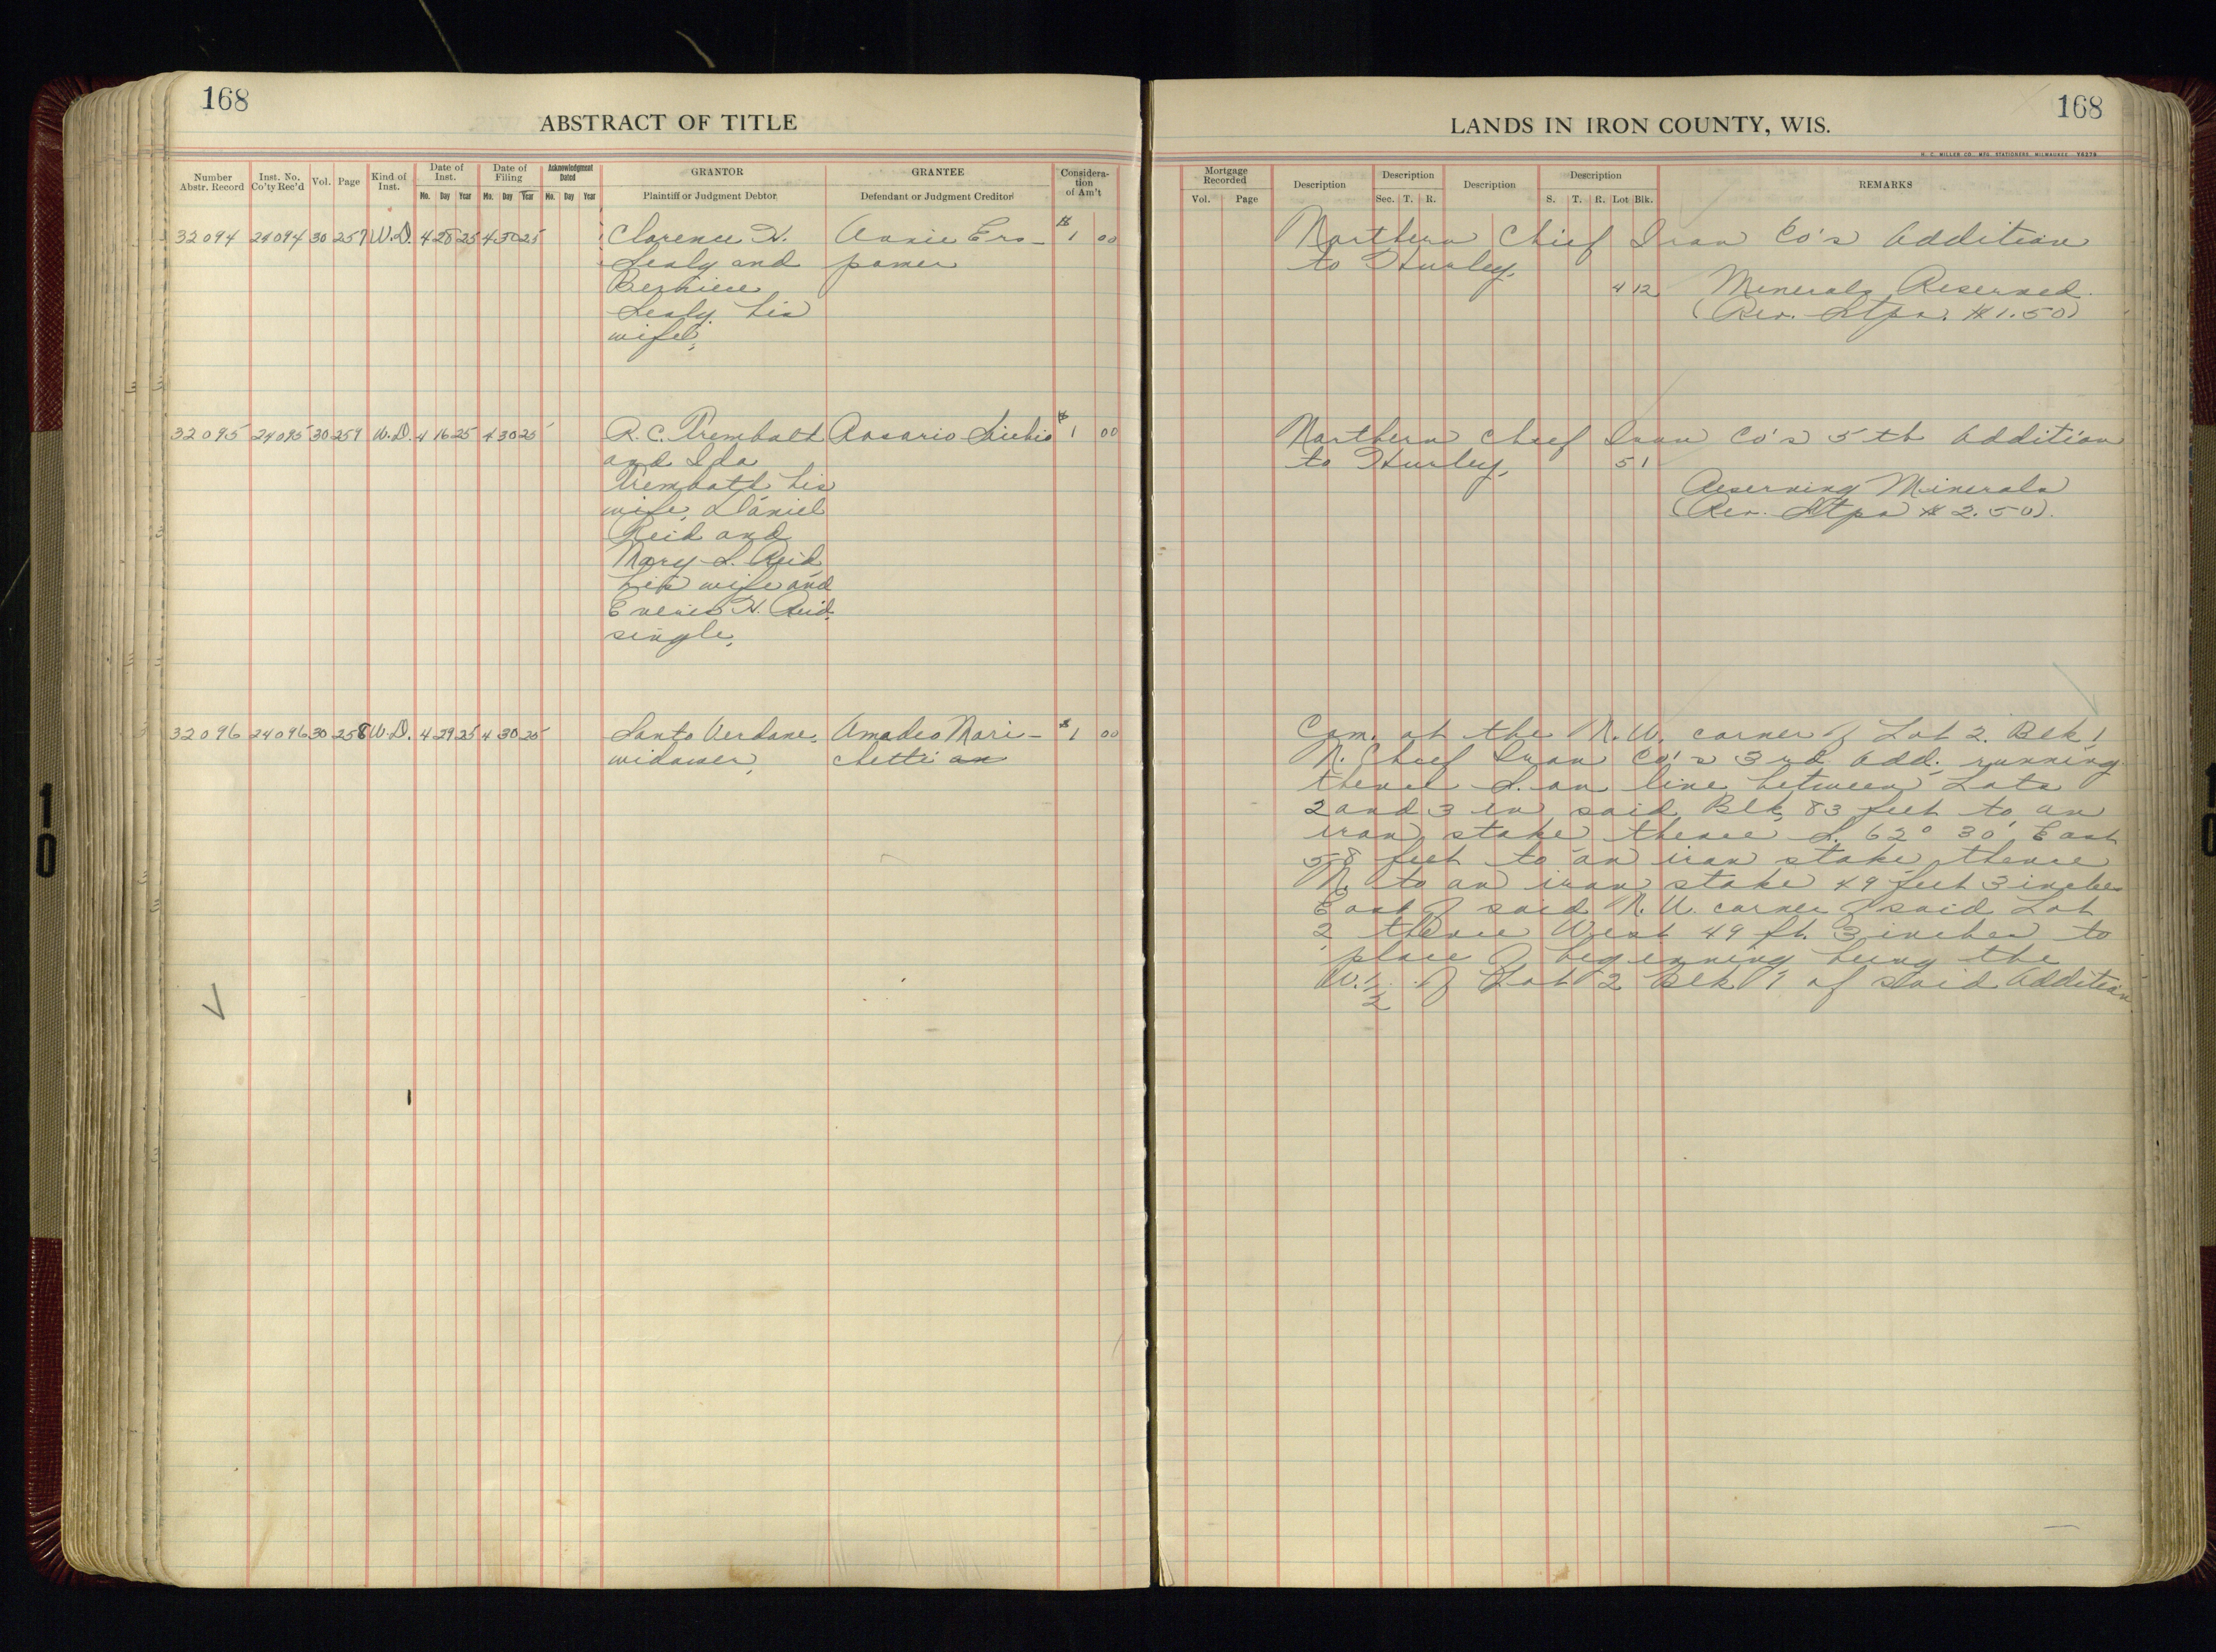 168
ABSTRACT OF TITLE
Number Abstr. Record Inst. No. Co'ty Rec'd Vol. Page Kind of Inst. Date of Inst. Date of Filing Acknowledgment Dated GRANTOR GRANTEE Considera-tion of Am't
Mo. Day Year Mo. Day Year Mo. Day Year Plaintiff or Judgment Debtor Defendant or Judgment Creditor
32094 24094 30 257 W.D. 4 28 25 4 30 25 Clarence H. Annie Ero- $1 00
Lealy and pamer
Berniece
Lealy his
wife,
32095 24095 30 259 W.D. 4 16 25 4 30 25 R. C. Trembath Rosario $1 00
and Ida
Trembath his
wife, Daniel
Reid and
Mary L. Reid
his wife and
H. Reid
single,
32096 24096 30 258 W.D. 4 29 25 4 30 25 Santo Verdane, Amadeo Mari- $1 00
widower, chetti
168
LANDS IN IRON COUNTY, WIS.
H. C. MILLER CO. MFG. STATIONERS, MILWAUKEE
Mortgage Recorded Description Description Description Description REMARKS
Vol. Page Sec. T. R. S. T. R. Lot Blk.
Northern Chief Iron Co's Addition
to Hurley,
4 12 Minerals Reserved.
(Rev. Stps. $1.50)
Northern Chief Iron Co's 5th Addition
to Hurley, 5 1
Reserving Minerals
(Rev. Stps $2.50).
Com. at the N.W. corner of Lot 2. Blk 1
N. Chief Iron Co's 3rd Add; running
thence S. on line between Lots
2 and 3 in said Blk, 83 feet to an
iron stake thence S. 62° 30' East
58 feet to an iron stake, thence
N. to an iron stake 49 feet 3 inches
East of said N.W. corner of said Lot
2, thence West 49 ft. 3 inches to
place of beginning being the
W. 1/2 of Lot 2 Blk 1 of said Addition